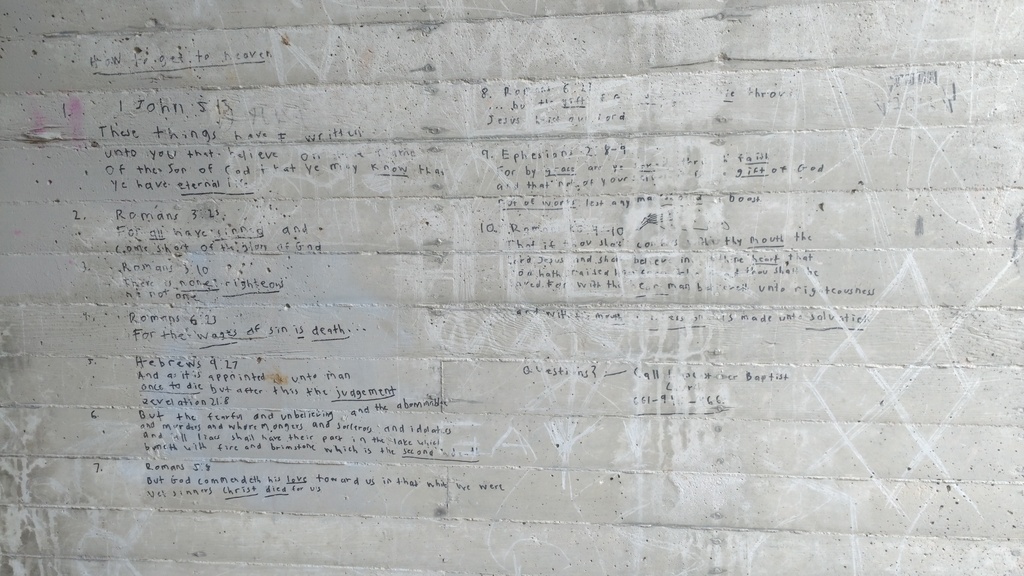 How to get to heaven
1. 1 John 5:13
These things have I written
unto you that believe on name
of the Son of God that ye may know that
ye have eternal
2. Romans 3:23
For all have sinned and
come short of the glory of God
3. Romans 3:10
There is none righteous
no not one
4. Romans 6:23
For the wages of sin is death...
5. Hebrews 9:27
And as it is appointed unto man
once to die but after this the judgement
Revelation 21:8
6. But the fearful and unbelieving and the abominable
and murders and whoremongers and sorcerors and idolators
and all liars shall have their part in the lake which
burneth with fire and brimstone which is the second
7. Romans 5:8
But God commendeth his love toward us in that while we were
yet sinners Christ died for us
8. Romans 6:23
...but the gift
Jesus Christ our Lord
9. Ephesians 2:8-9
For by grace are ye faith
and that not of your gift of God
not of works lest any man boast
10. Romans 9-10
That if thou shalt confess with thy mouth the
Lord Jesus and shalt believe in thine heart that
God hath raised him thou shalt be
saved. For with the heart man believeth unto righteousness
and with mouth is made unto salvation
Questions? Call Baptist